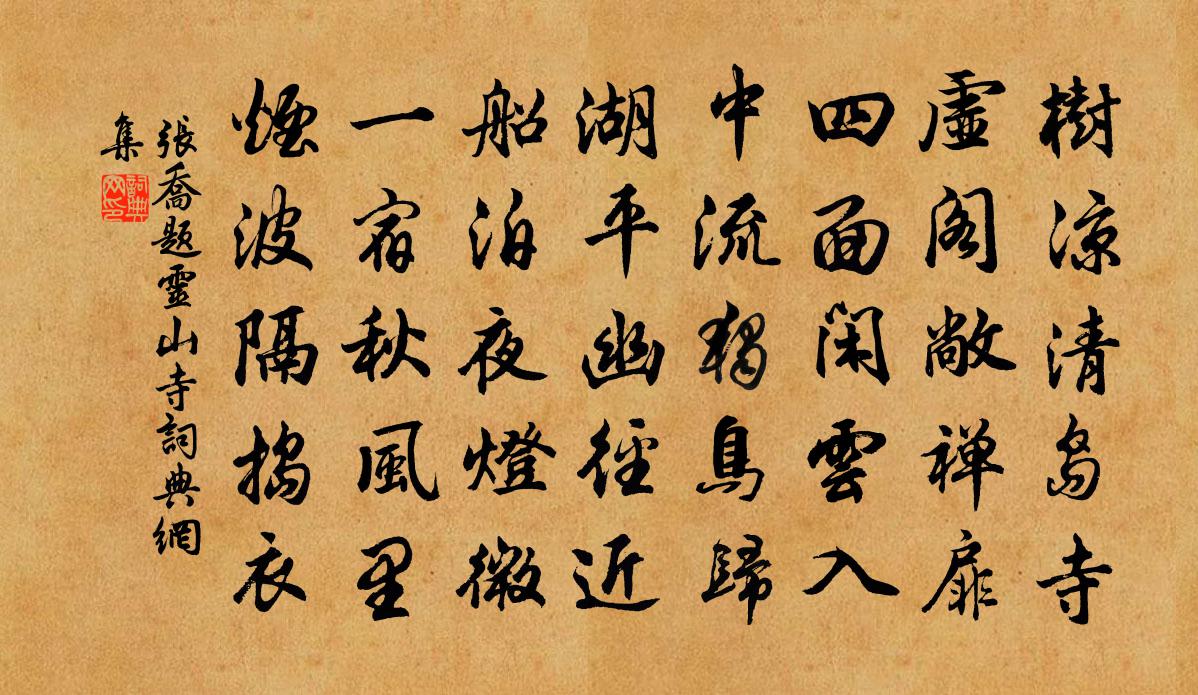 樹涼清島寺
虛閣敞禅扉
四面閑雲入
中流獨鳥歸
湖平幽徑近
船泊夜燈微
一宿秋風里
煙波隔搗衣
張喬題靈山寺詞典網
集
詞典网印